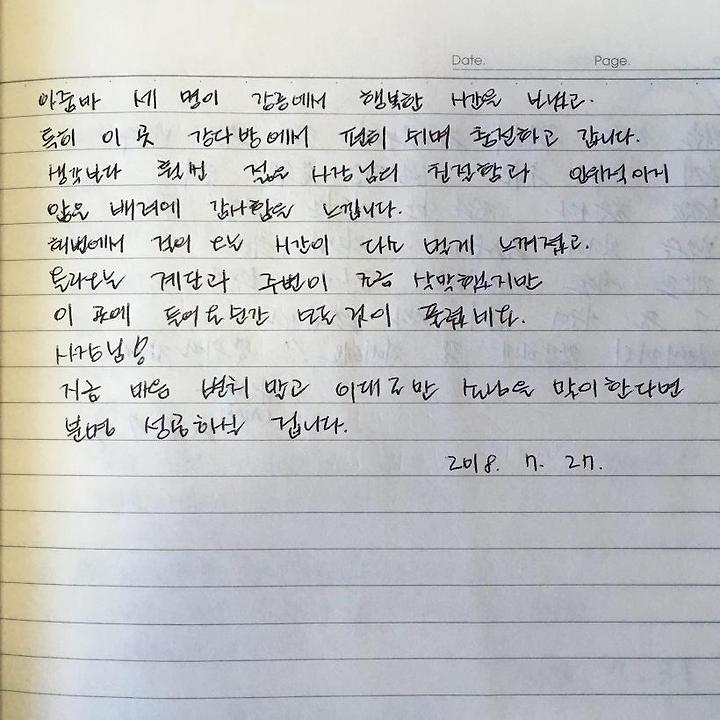 Date. Page.
아줌마 세 명이 강릉에서 행복한 시간을 보냈고.
특히 이 곳 강다방에서 편히 쉬며 충전하고 갑니다.
생각보다 훨씬 젊은 사장님의 친절함과 인위적이게
않은 배려에 감사함을 느낍니다.
해변에서 걸어 오는 시간이 다소 멀게 느껴졌고.
올라오는 계단과 주변이 조금 삭막했지만
이 곳에 들어온 순간 모든 것이 풀렸네요.
사장님!
지금 마음 변치 말고 이대로만 손님을 맞이한다면
분명 성공하실 겁니다.
2018. 7. 27.